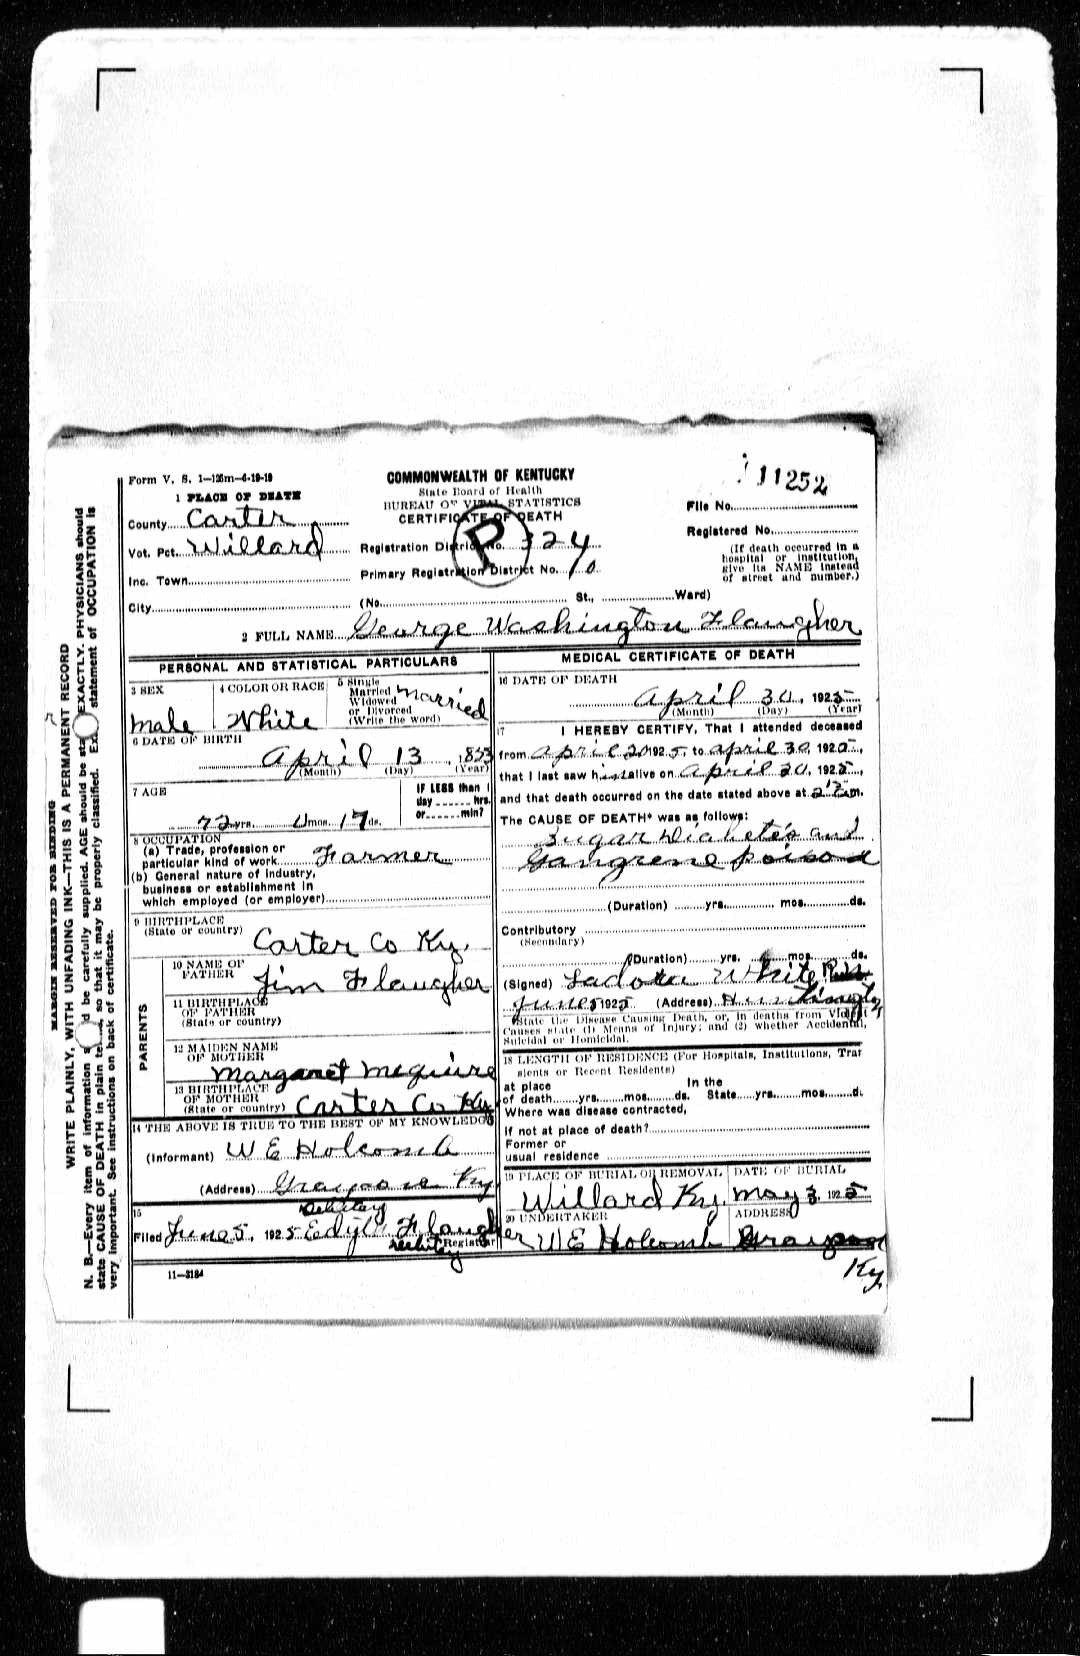 11252
Form V. S. 1—125m—4-19-19
COMMONWEALTH OF KENTUCKY
State Board of Health
BUREAU OF VITAL STATISTICS
CERTIFICATE OF DEATH
P
1 PLACE OF DEATH
County Carter
Vot. Pct. Willard
Inc. Town
City
Registration District No. 324
Primary Registration District No. 10
(No. St., Ward)
File No.
Registered No.
(If death occurred in a
hospital or institution,
give its NAME instead
of street and number.)
2 FULL NAME George Washington Flaugher
PERSONAL AND STATISTICAL PARTICULARS
3 SEX
male
4 COLOR OR RACE
White
5 Single
Married
Widowed
or Divorced
(Write the word)
married
6 DATE OF BIRTH
April 13, 1853
(Month) (Day) (Year)
7 AGE
72 yrs. 0 mos. 17 ds.
IF LESS than 1
day hrs.
or min?
8 OCCUPATION
(a) Trade, profession or
particular kind of work Farmer
(b) General nature of industry,
business or establishment in
which employed (or employer)
9 BIRTHPLACE
(State or country)
Carter Co Ky.
PARENTS
10 NAME OF
FATHER
Jim Flaugher
11 BIRTHPLACE
OF FATHER
(State or country)
12 MAIDEN NAME
OF MOTHER
Margaret McGuire
13 BIRTHPLACE
OF MOTHER
(State or country) Carter Co Ky
14 THE ABOVE IS TRUE TO THE BEST OF MY KNOWLEDGE
(Informant) W E Holcomb
(Address) Grayson Ky
15
Filed June 5, 1925 Flaugher
Registrar
11—3184
MEDICAL CERTIFICATE OF DEATH
16 DATE OF DEATH
April 30, 1925
(Month) (Day) (Year)
17 I HEREBY CERTIFY, That I attended deceased
from April 20 1925, to April 30, 1925,
that I last saw him alive on April 30, 1925,
and that death occurred on the date stated above at m.
The CAUSE OF DEATH* was as follows:
Sugar Diabetes and
Gangrene poison
(Duration) yrs. mos. ds.
Contributory
(Secondary)
(Duration) yrs. mos. ds.
(Signed) White
June 5 1925 (Address)
*State the Disease Causing Death, or, in deaths from Violent
Causes state (1) Means of Injury; and (2) whether Accidental,
Suicidal or Homicidal.
18 LENGTH OF RESIDENCE (For Hospitals, Institutions, Tran
sients or Recent Residents)
at place In the
of death yrs. mos. ds. State yrs. mos. d.
Where was disease contracted,
If not at place of death?
Former or
usual residence
19 PLACE OF BURIAL OR REMOVAL
Willard Ky.
DATE OF BURIAL
May 3, 1925
20 UNDERTAKER
W E Holcomb
ADDRESS
Grayson
Ky
MARGIN RESERVED FOR BINDING
WRITE PLAINLY, WITH UNFADING INK—THIS IS A PERMANENT RECORD
N. B.—Every item of information should be carefully supplied. AGE should be stated EXACTLY. PHYSICIANS should
state CAUSE OF DEATH in plain terms, so that it may be properly classified. Exact statement of OCCUPATION is
very important. See instructions on back of certificate.